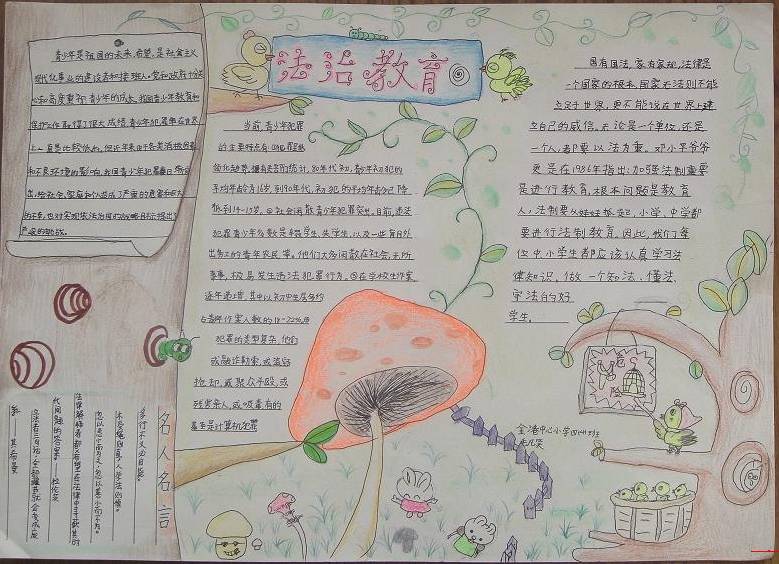 法治教育
青少年是祖国的未来,希望,是社会主义
现代化事业的建设者和接班人。党和政府十分关
心和高度重视青少年的成长,我国青少年教育和
保护工作取得了很大成绩,青少年犯罪率在世界
上一直是比较低的。但近年来由于各类消极因素
和不良环境的影响,我国青少年犯罪
给社会、家庭和个人造成了严重的危害和巨大
的不幸,也对实现依法治国的战略目标提出了
严峻的挑战。
当前,青少年犯罪
的主要特点有:①低龄
化趋势。据有关部门统计,80年代初,青少年初犯的
平均年龄为16岁,到90年代,初犯的平均年龄分
低到14-15岁。②社会闲散青少年犯罪突出。目前,违法
犯罪青少年多数是辍学生、失学生,以及一些盲目外
出务工的青年农民等。他们大多闲散在社会,无所
事事,极易发生违法犯罪行为。③在学校生作案
逐年递增,其中以初中生居多约
占青少年作案人数的18-22%。④
犯罪的类型复杂。他们
或敲诈勒索,或盗窃
抢劫,或聚众斗殴,或
残害亲人,或吸毒,有的
甚至是计算机犯罪
国有国法,家有家规,法律是
一个国家的根本,国家无法则不能
立足于世界,更不能说在世界上建
立自己的威信。无论是一个单位,还是
一个人,都要以法为重。邓小平爷爷
更是在1986年指出:加强法制重要
是进行教育,根本问题是教育
人。法制要从娃娃抓起,小学、中学都
要进行法制教育。因此,我们每
位中小学生都应该认真学习法
律知识,做一个知法、懂法、
守法的好
学生。
金港中心小学四(4)班
名人名言
多行不义必自毙。
木受绳则直,人学法则慧。
勿以恶小而为之,勿以善小而不为。
代问题的答案。 杜佐夫